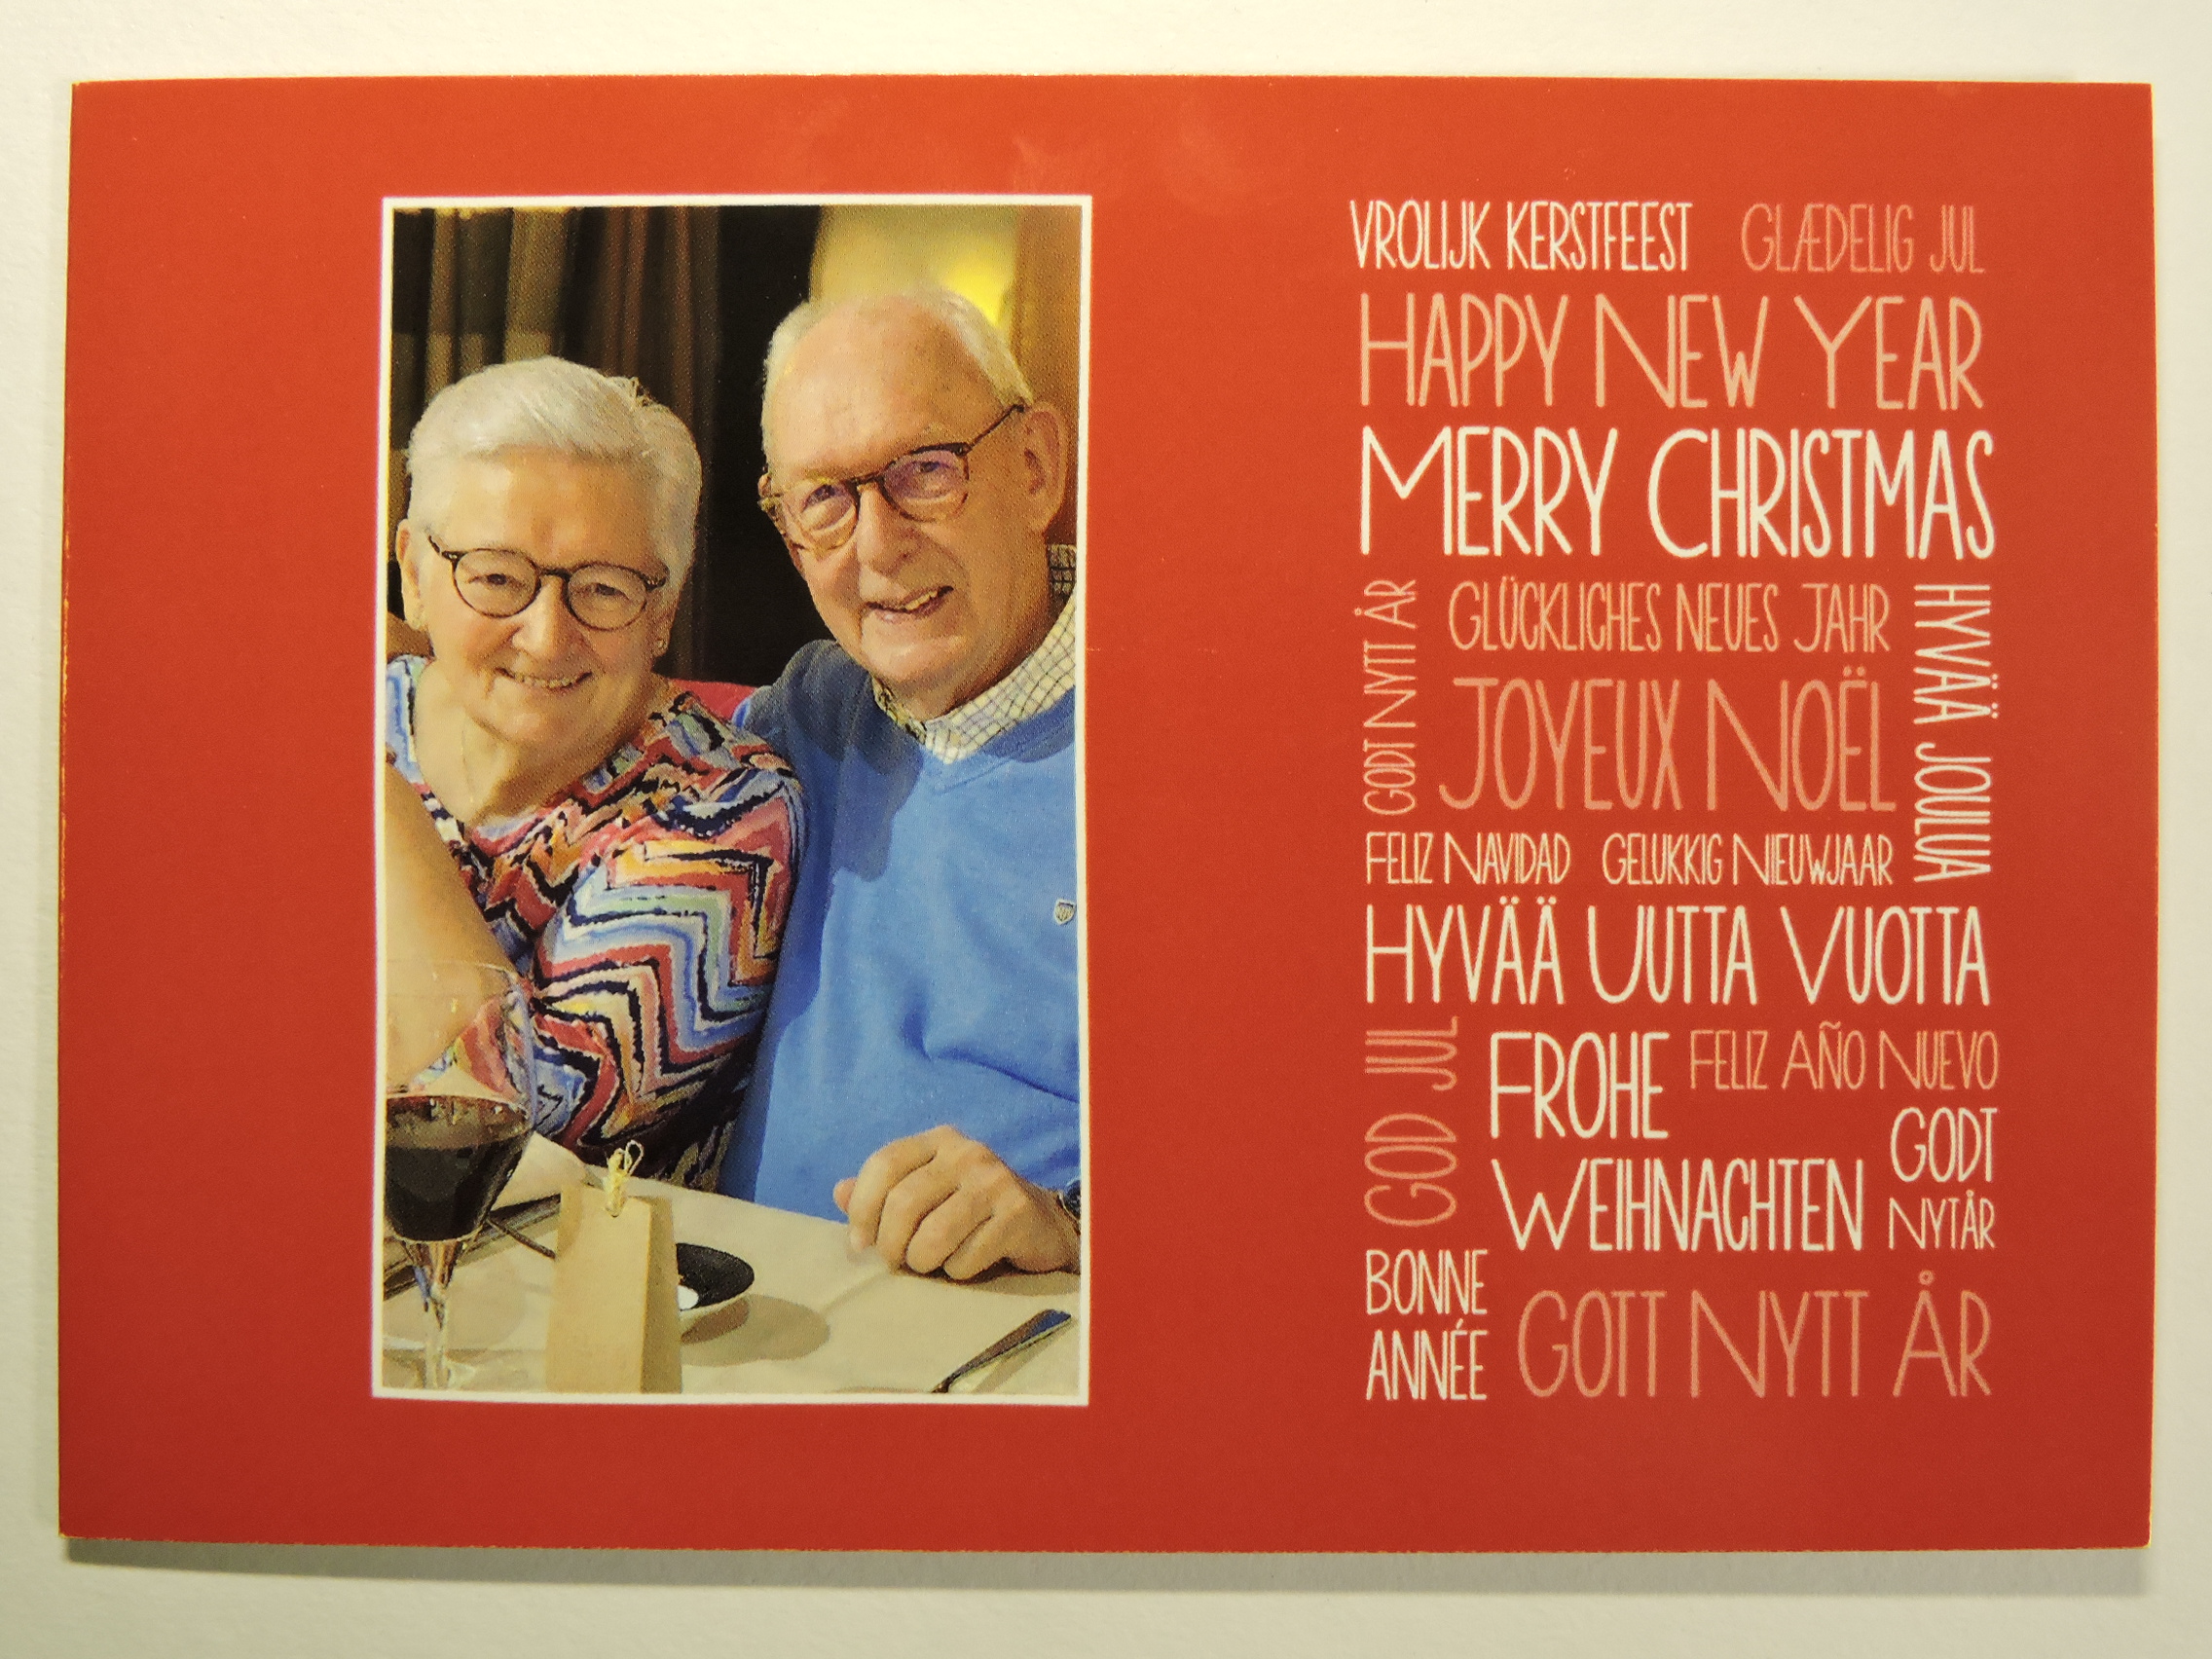 VROLIJK KERSTFEEST GLÆDELIG JUL
HAPPY NEW YEAR
MERRY CHRISTMAS
GODT NYTT ÅR
GLÜCKLICHES NEUES JAHR
HYVÄÄ JOULUA
JOYEUX NOËL
FELIZ NAVIDAD GELUKKIG NIEUWJAAR
HYVÄÄ UUTTA VUOTTA
GOD JUL
FROHE
FELIZ AÑO NUEVO
WEIHNACHTEN
GODT
NYTÅR
BONNE
ANNÉE
GOTT NYTT ÅR